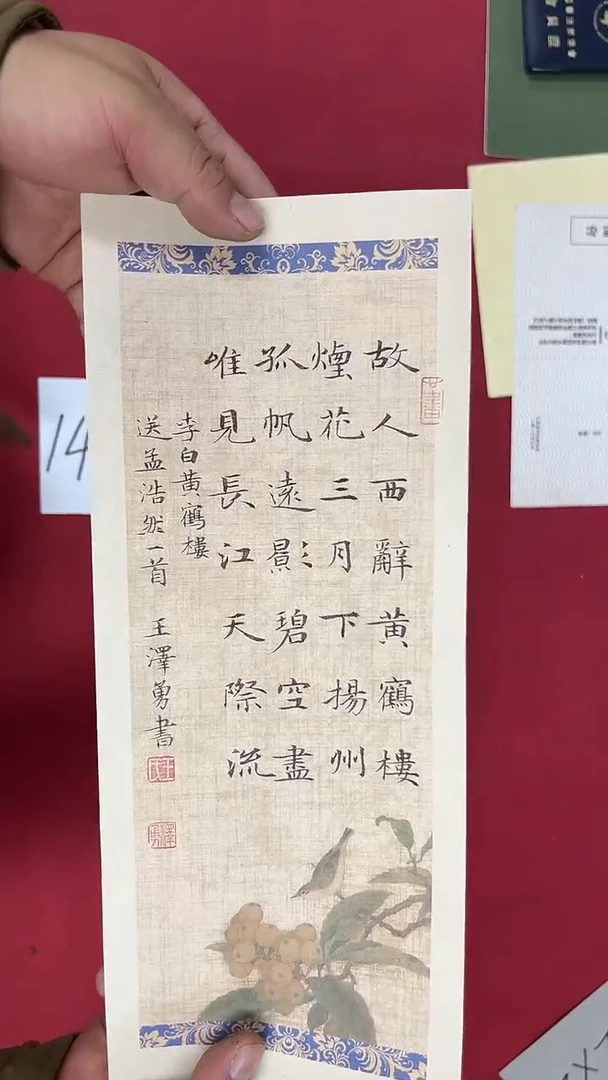 故人西辭黄鶴樓
煙花三月下揚州
孤帆遠影碧空盡
唯見長江天際流
李白黄鶴樓
送孟浩然一首 王澤勇書
14